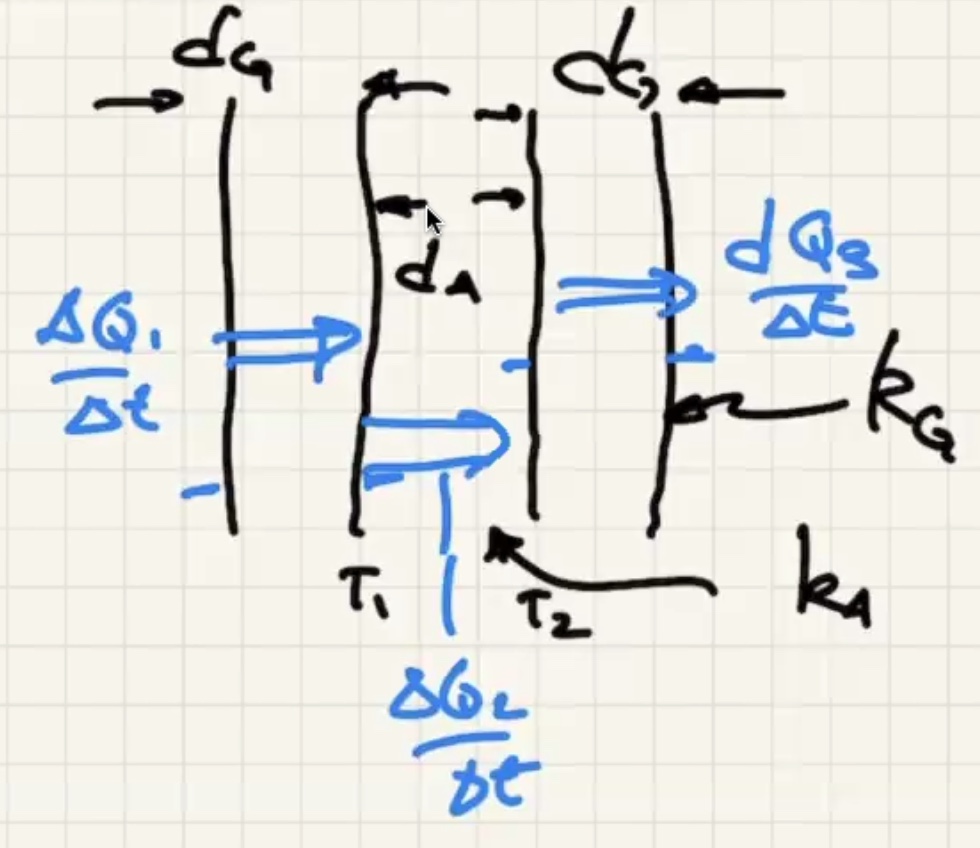 dG
dG
dA
ΔQ1
Δt
dQ3
ΔE
kG
T1
T2
kA
ΔQ2
Δt